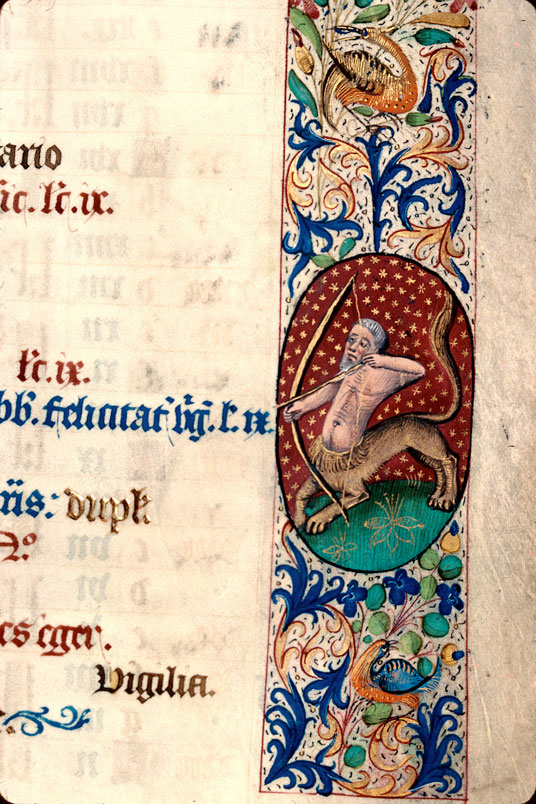 ario
ic. lc. ix.
lc. ix.
bb. felicitat vg. l. ix.
ris: dupl.
A°
es eger.
Vigilia.